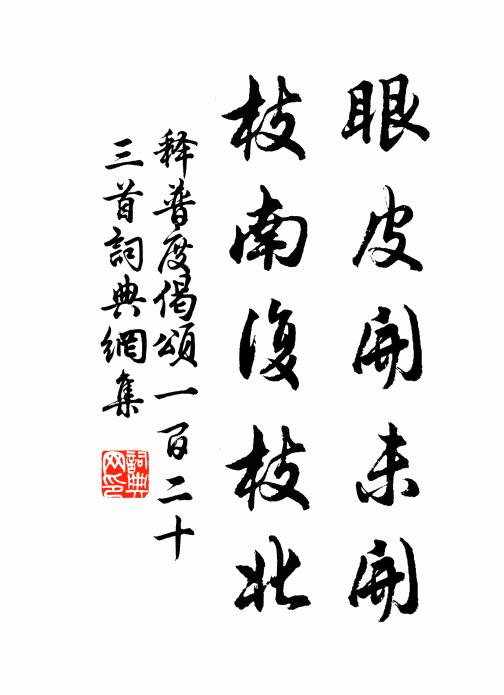 眼皮開未開
枝南復枝北
释普度偈頌一百二十
三首詞典網集
詞典网印